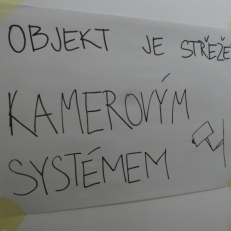 OBJEKT JE STŘEŽE
KAMEROVÝM
SYSTÉMEM